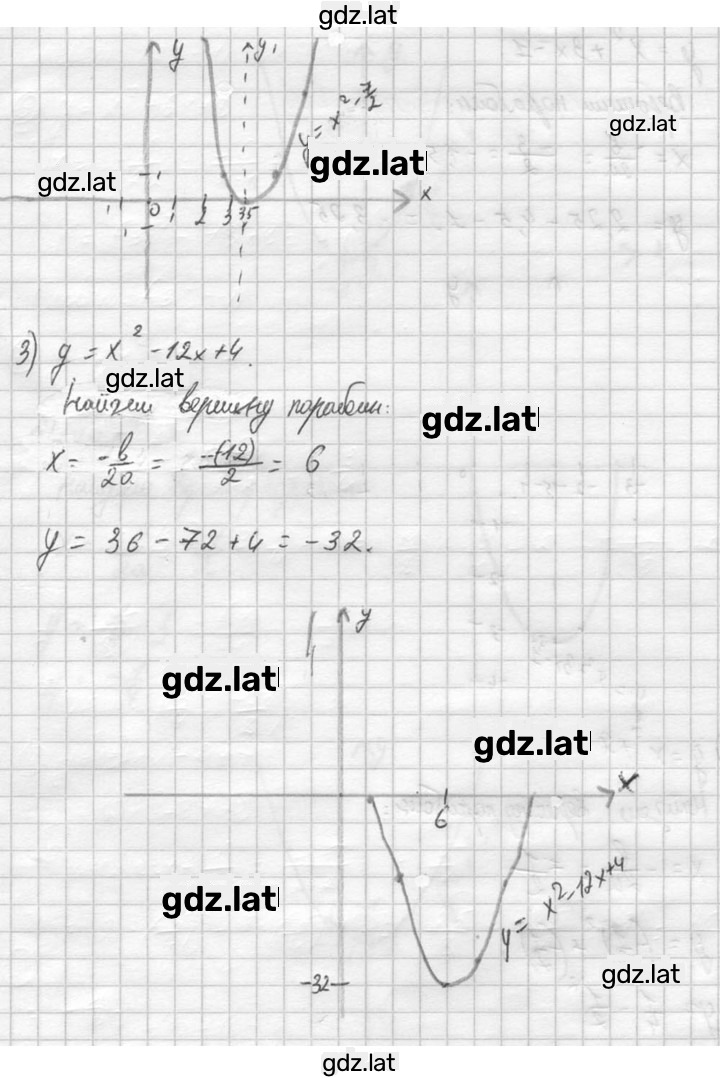 gdz.lat
y y₁
gdz.lat
gdz.lat
gdz.lat
1 x
0 1 2 3 3,5
3) y = x² - 12x + 4.
gdz.lat
Найдем вершину параболы:
gdz.lat
x = -b/2a = -(-12)/2 = 6
y = 36 - 72 + 4 = -32.
y
4
gdz.lat
gdz.lat
x
6
gdz.lat
y = x² - 12x + 4
gdz.lat
-32
gdz.lat